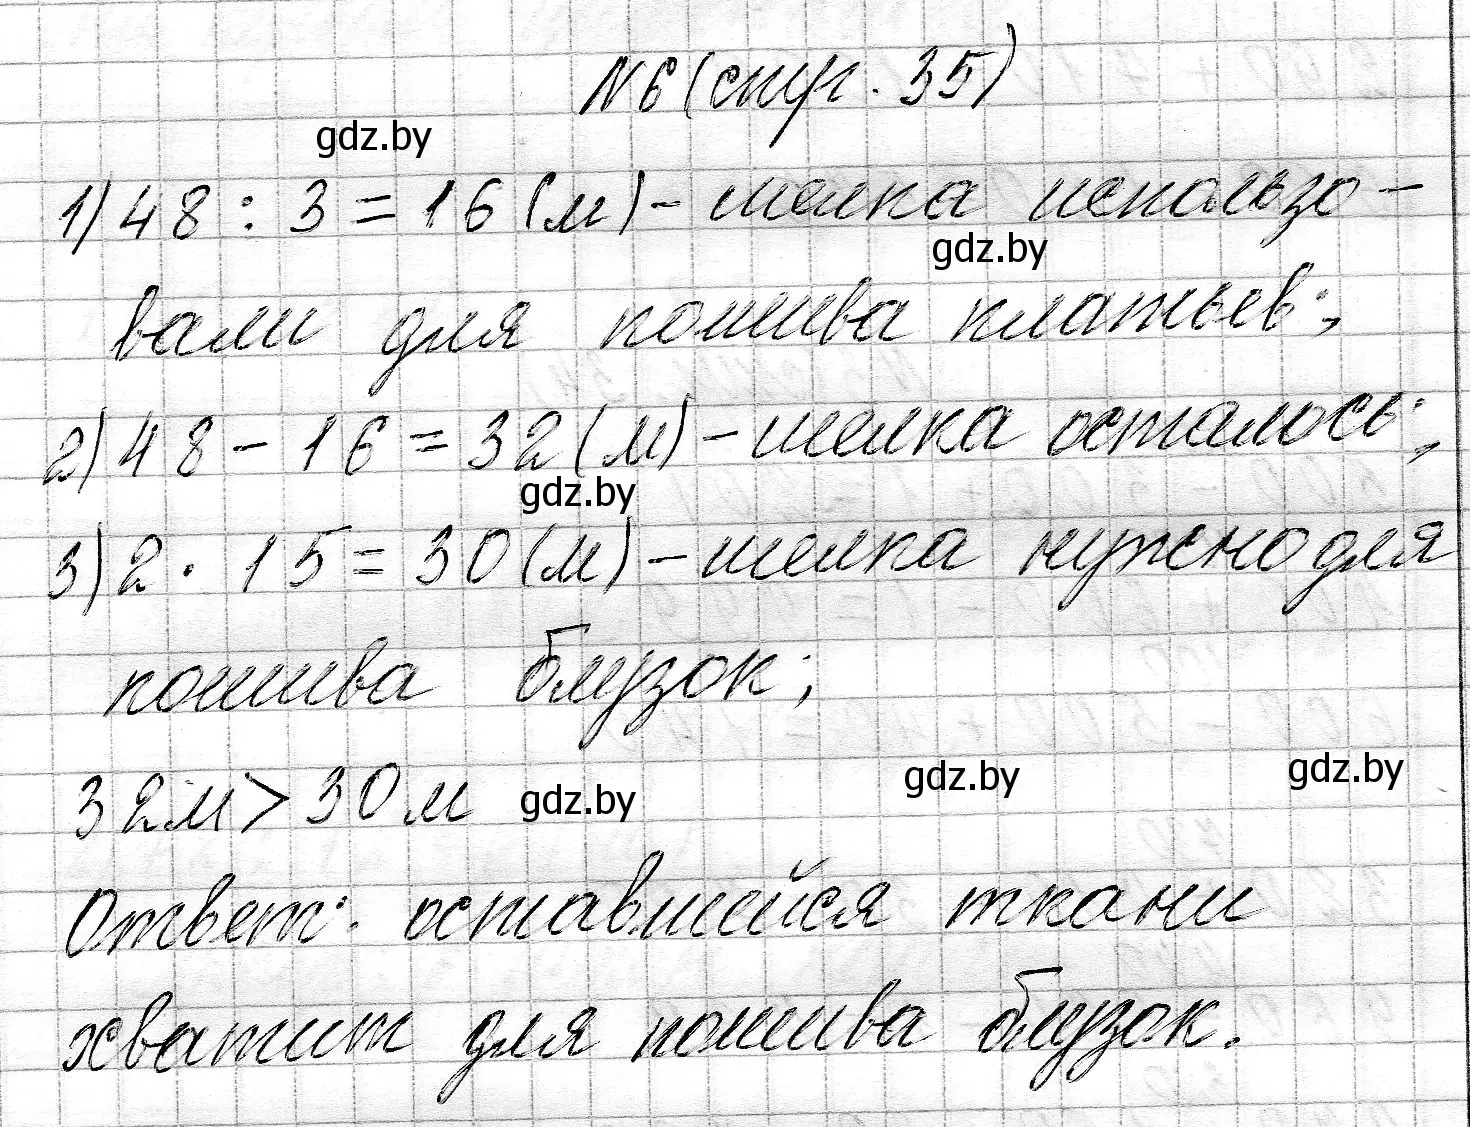 №6 (стр. 35)
gdz.by
1) 48 : 3 = 16 (м) - шелка использо -
gdz.by
вали для пошива платьев;
2) 48 - 16 = 32 (м) - шелка осталось;
gdz.by
3) 2 · 15 = 30 (м) - шелка нужно для
пошива блузок;
32м > 30м gdz.by gdz.by gdz.by
Ответ: оставшейся ткани
хватит для пошива блузок.